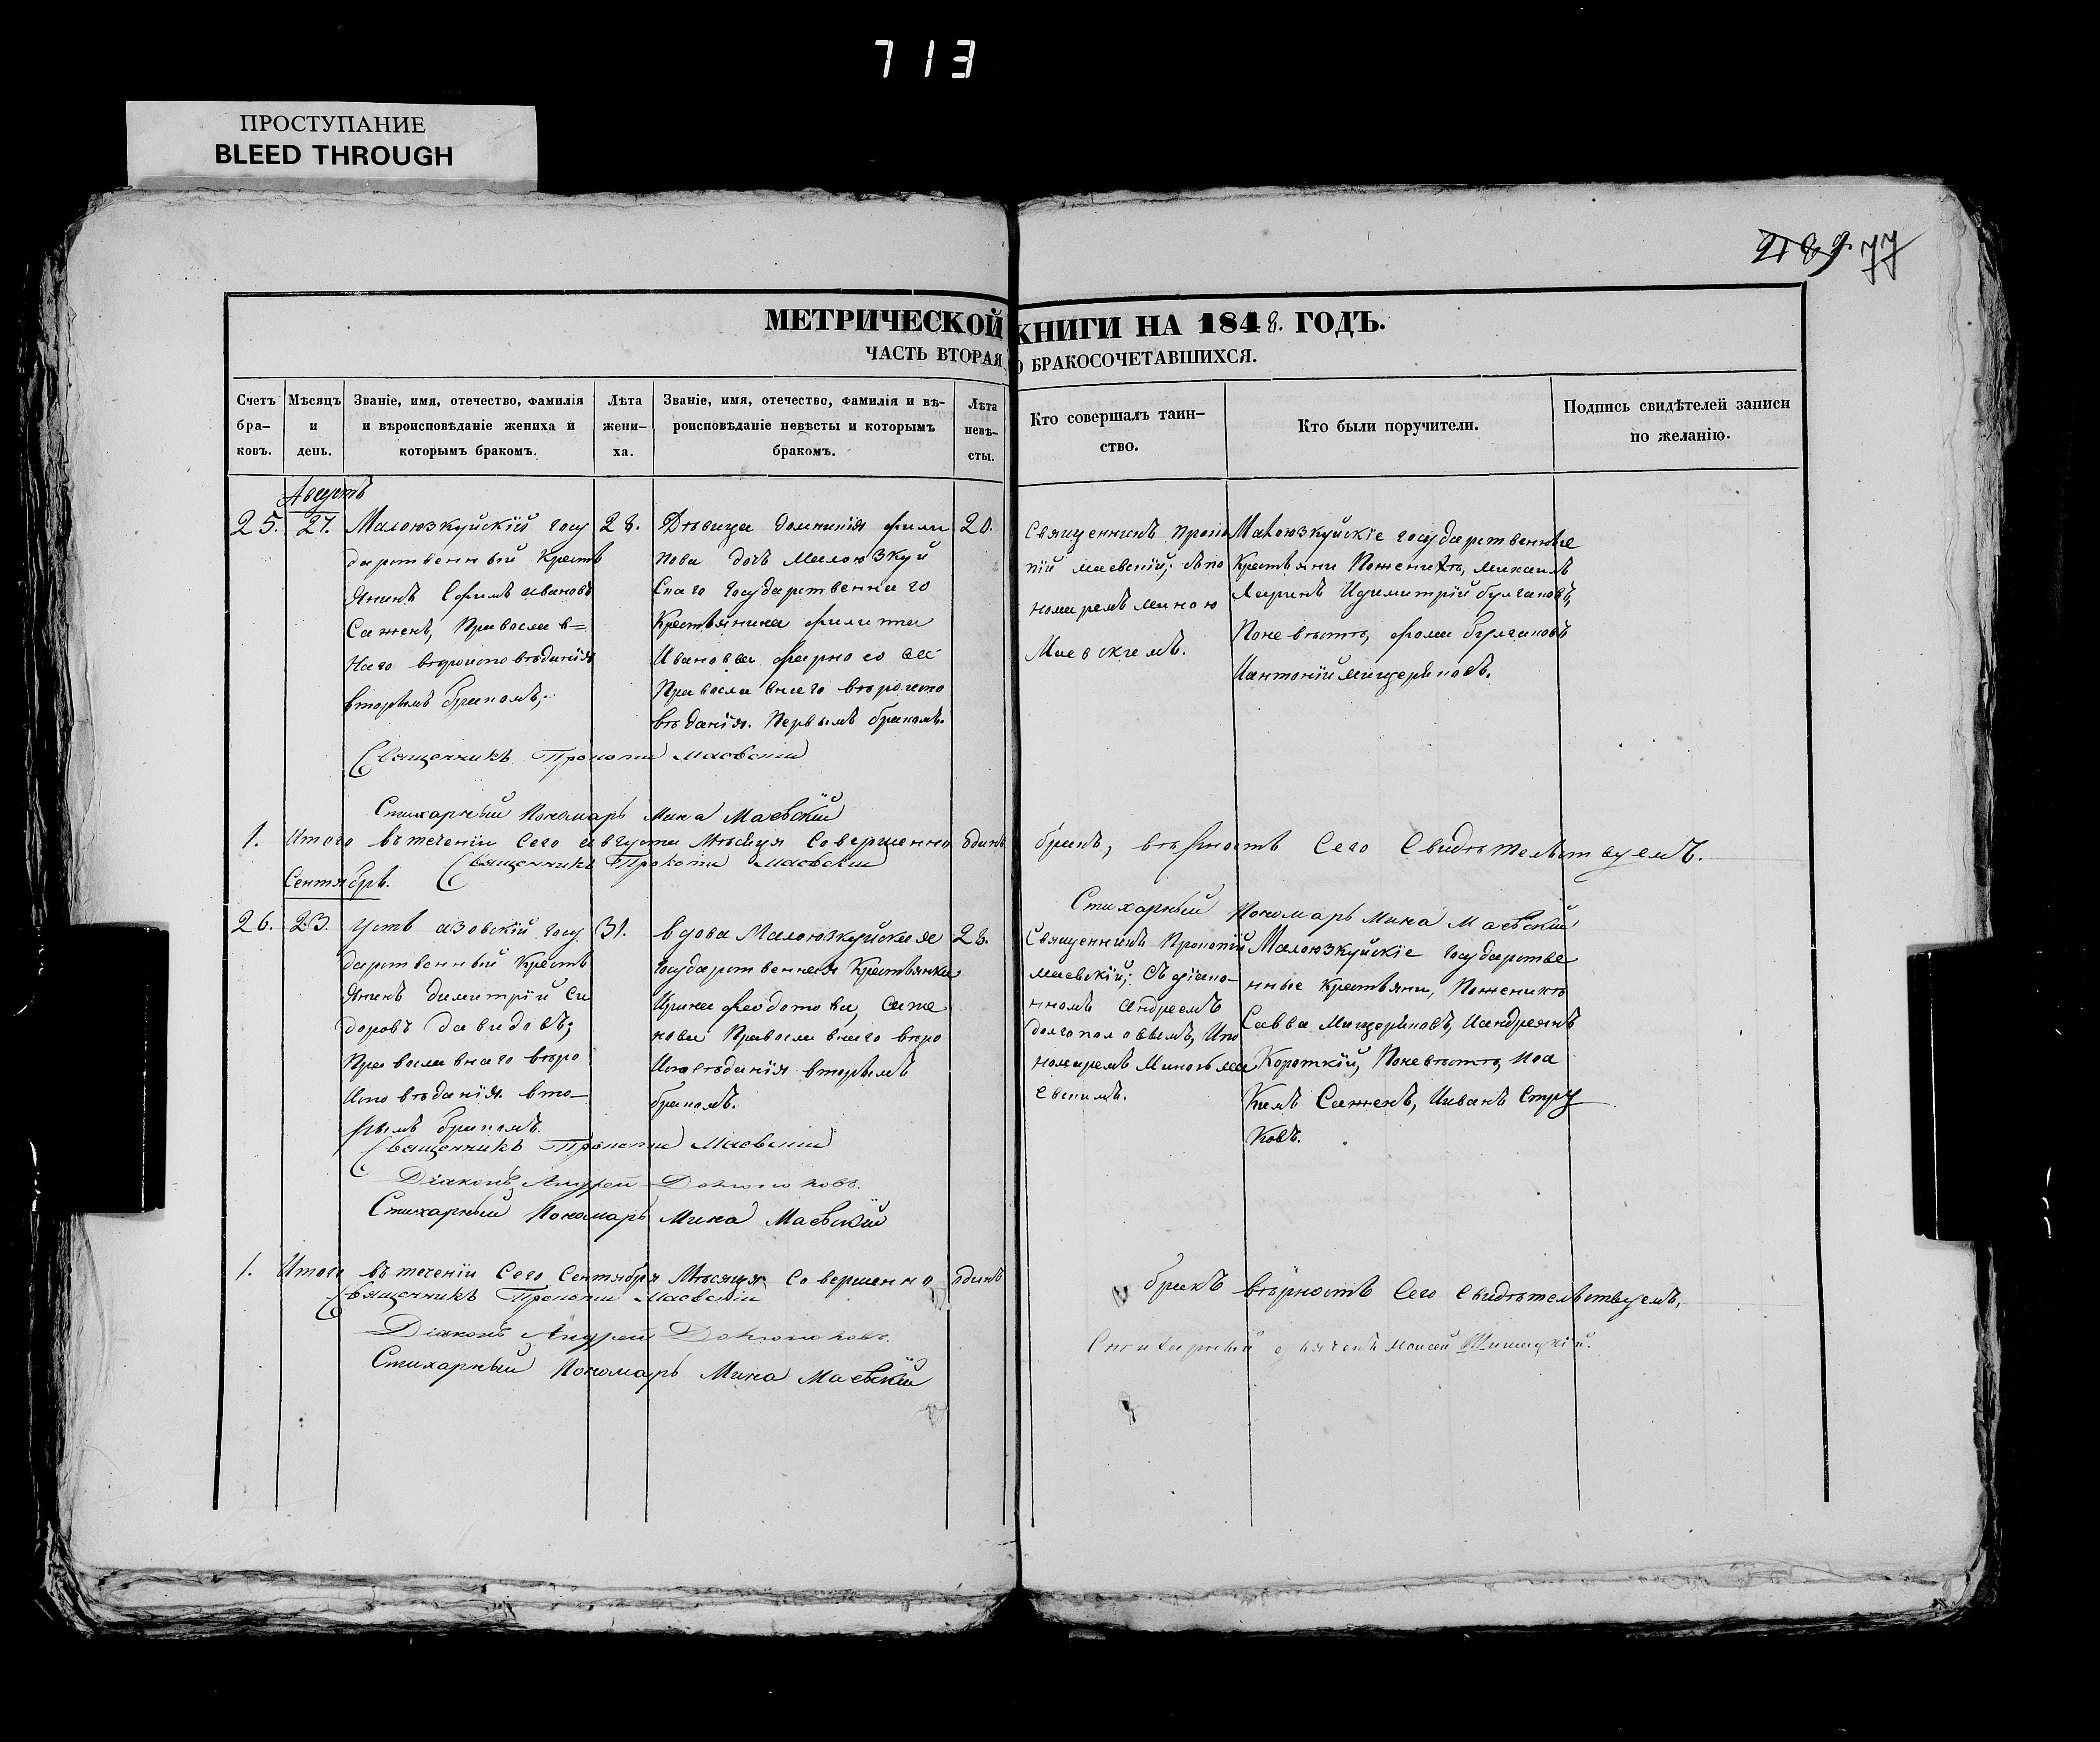 713
ПРОСТУПАНИЕ
BLEED THROUGH
77
МЕТРИЧЕСКОЙ КНИГИ НА 1848. ГОДЪ.
ЧАСТЬ ВТОРАЯ, О БРАКОСОЧЕТАВШИХСЯ.
Счетъ бра-
ковъ.
Мѣсяцъ
и
день.
Званіе, имя, отечество, фамилія
и вѣроисповѣданіе жениха и
которымъ бракомъ.
Лѣта
жени-
ха.
Званіе, имя, отечество, фамилія и вѣ-
роисповѣданіе невѣсты и которымъ
бракомъ.
Лѣта
невѣ-
сты.
Кто совершалъ таин-
ство.
Кто были поручители.
Подпись свидѣтелей записи
по желанію.
Августъ
25.
27.
Малоюзкуйскій госу
дарственный Кресть
янинъ Ефимъ Ивановъ
Саженъ, Православ=
наго вѣроисповѣданія
вторымъ бракомъ;
28.
Дѣвица Домникія Фили
пова дочь Малоюзкуй
Скаго Государственнаго
Крестьянина Филиппа
Иванова
Православнаго вѣроиспо
вѣданія. Первымъ бракомъ.
20.
Священникъ Проко
пій Маевскій; съ по
номаремъ Миною
Маевскимъ.
Малоюзкуйскіе государственные
Крестьяни Поженихѣ, Михаилъ
Ларинъ Идимитрій Булгаковъ,
Поневѣстѣ, Фома Булгаковъ
Иантоній Мищеряковъ.
Священникъ Прокопій Маевскій
Стихарный Пономарь Мина Маевскій
1. Итого въ теченіи Сего августа Мѣсяца Совершенно одинъ бракъ, вѣрность Сего Свидѣтельствуемъ.
Священникъ Прокопій Маевскій
Стихарный Пономарь Мина Маевскій
Сентябрь.
26.
23.
Усть азовскій Госу
дарственный Кресть
янинъ Димитрій Си
доровъ Давидовъ;
Православнаго вѣро
Исповѣданія. вто-
рымъ бракомъ.
31.
вдова Малоюзкуйская
Государственная Крестьянка
Ирина Феодотова, Саже
нова Православнаго вѣро
Исповѣданія вторымъ
бракомъ.
28.
Священникъ Прокопій
Маевскій; Съ діако-
номъ Андреемъ
Долгополовымъ, Ипо
номаремъ Миною Ма
евскимъ.
Малоюзкуйскіе государстве
нные крестьяни, Поженихѣ
Савва Мищеряковъ, Иандреянъ
Короткій, Поневѣстѣ, Иоа
Кимъ Саженъ, Ииванъ Стру
ковъ.
Священникъ Прокопій Маевскій
Діаконъ Андрей Долгополовъ.
Стихарный Пономарь Мина Маевскій
1. Итого въ теченіи Сего Сентября Мѣсяца Совершенно одинъ бракъ вѣрность Сего Свидѣтельствуемъ,
Священникъ Прокопій Маевскій
Діаконъ Андрей Долгополовъ.
Стихарный Моисей
Стихарный Пономарь Мина Маевскій